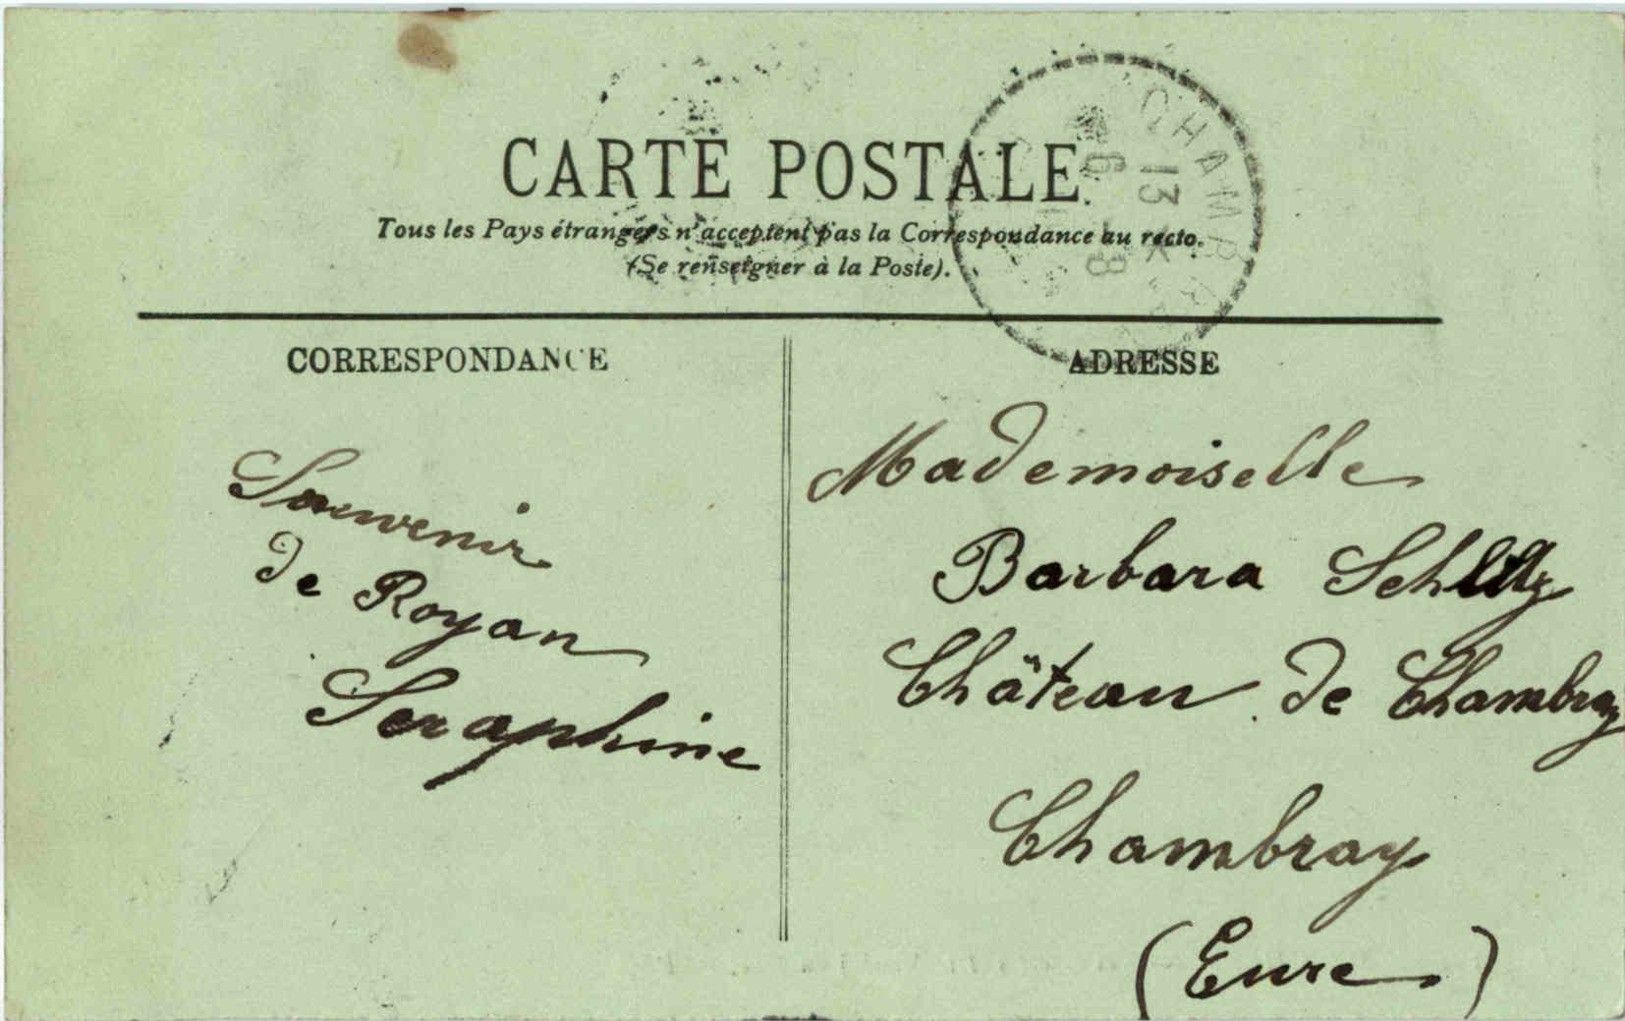 CARTE POSTALE.
Tous les Pays étrangers n'acceptent pas la Correspondance au recto.
(Se renseigner à la Poste).
CORRESPONDANCE
Souvenir
de Royan
Seraphine
ADRESSE
Mademoiselle
Barbara
Château de Chambray
Chambray
(Eure)
13
6